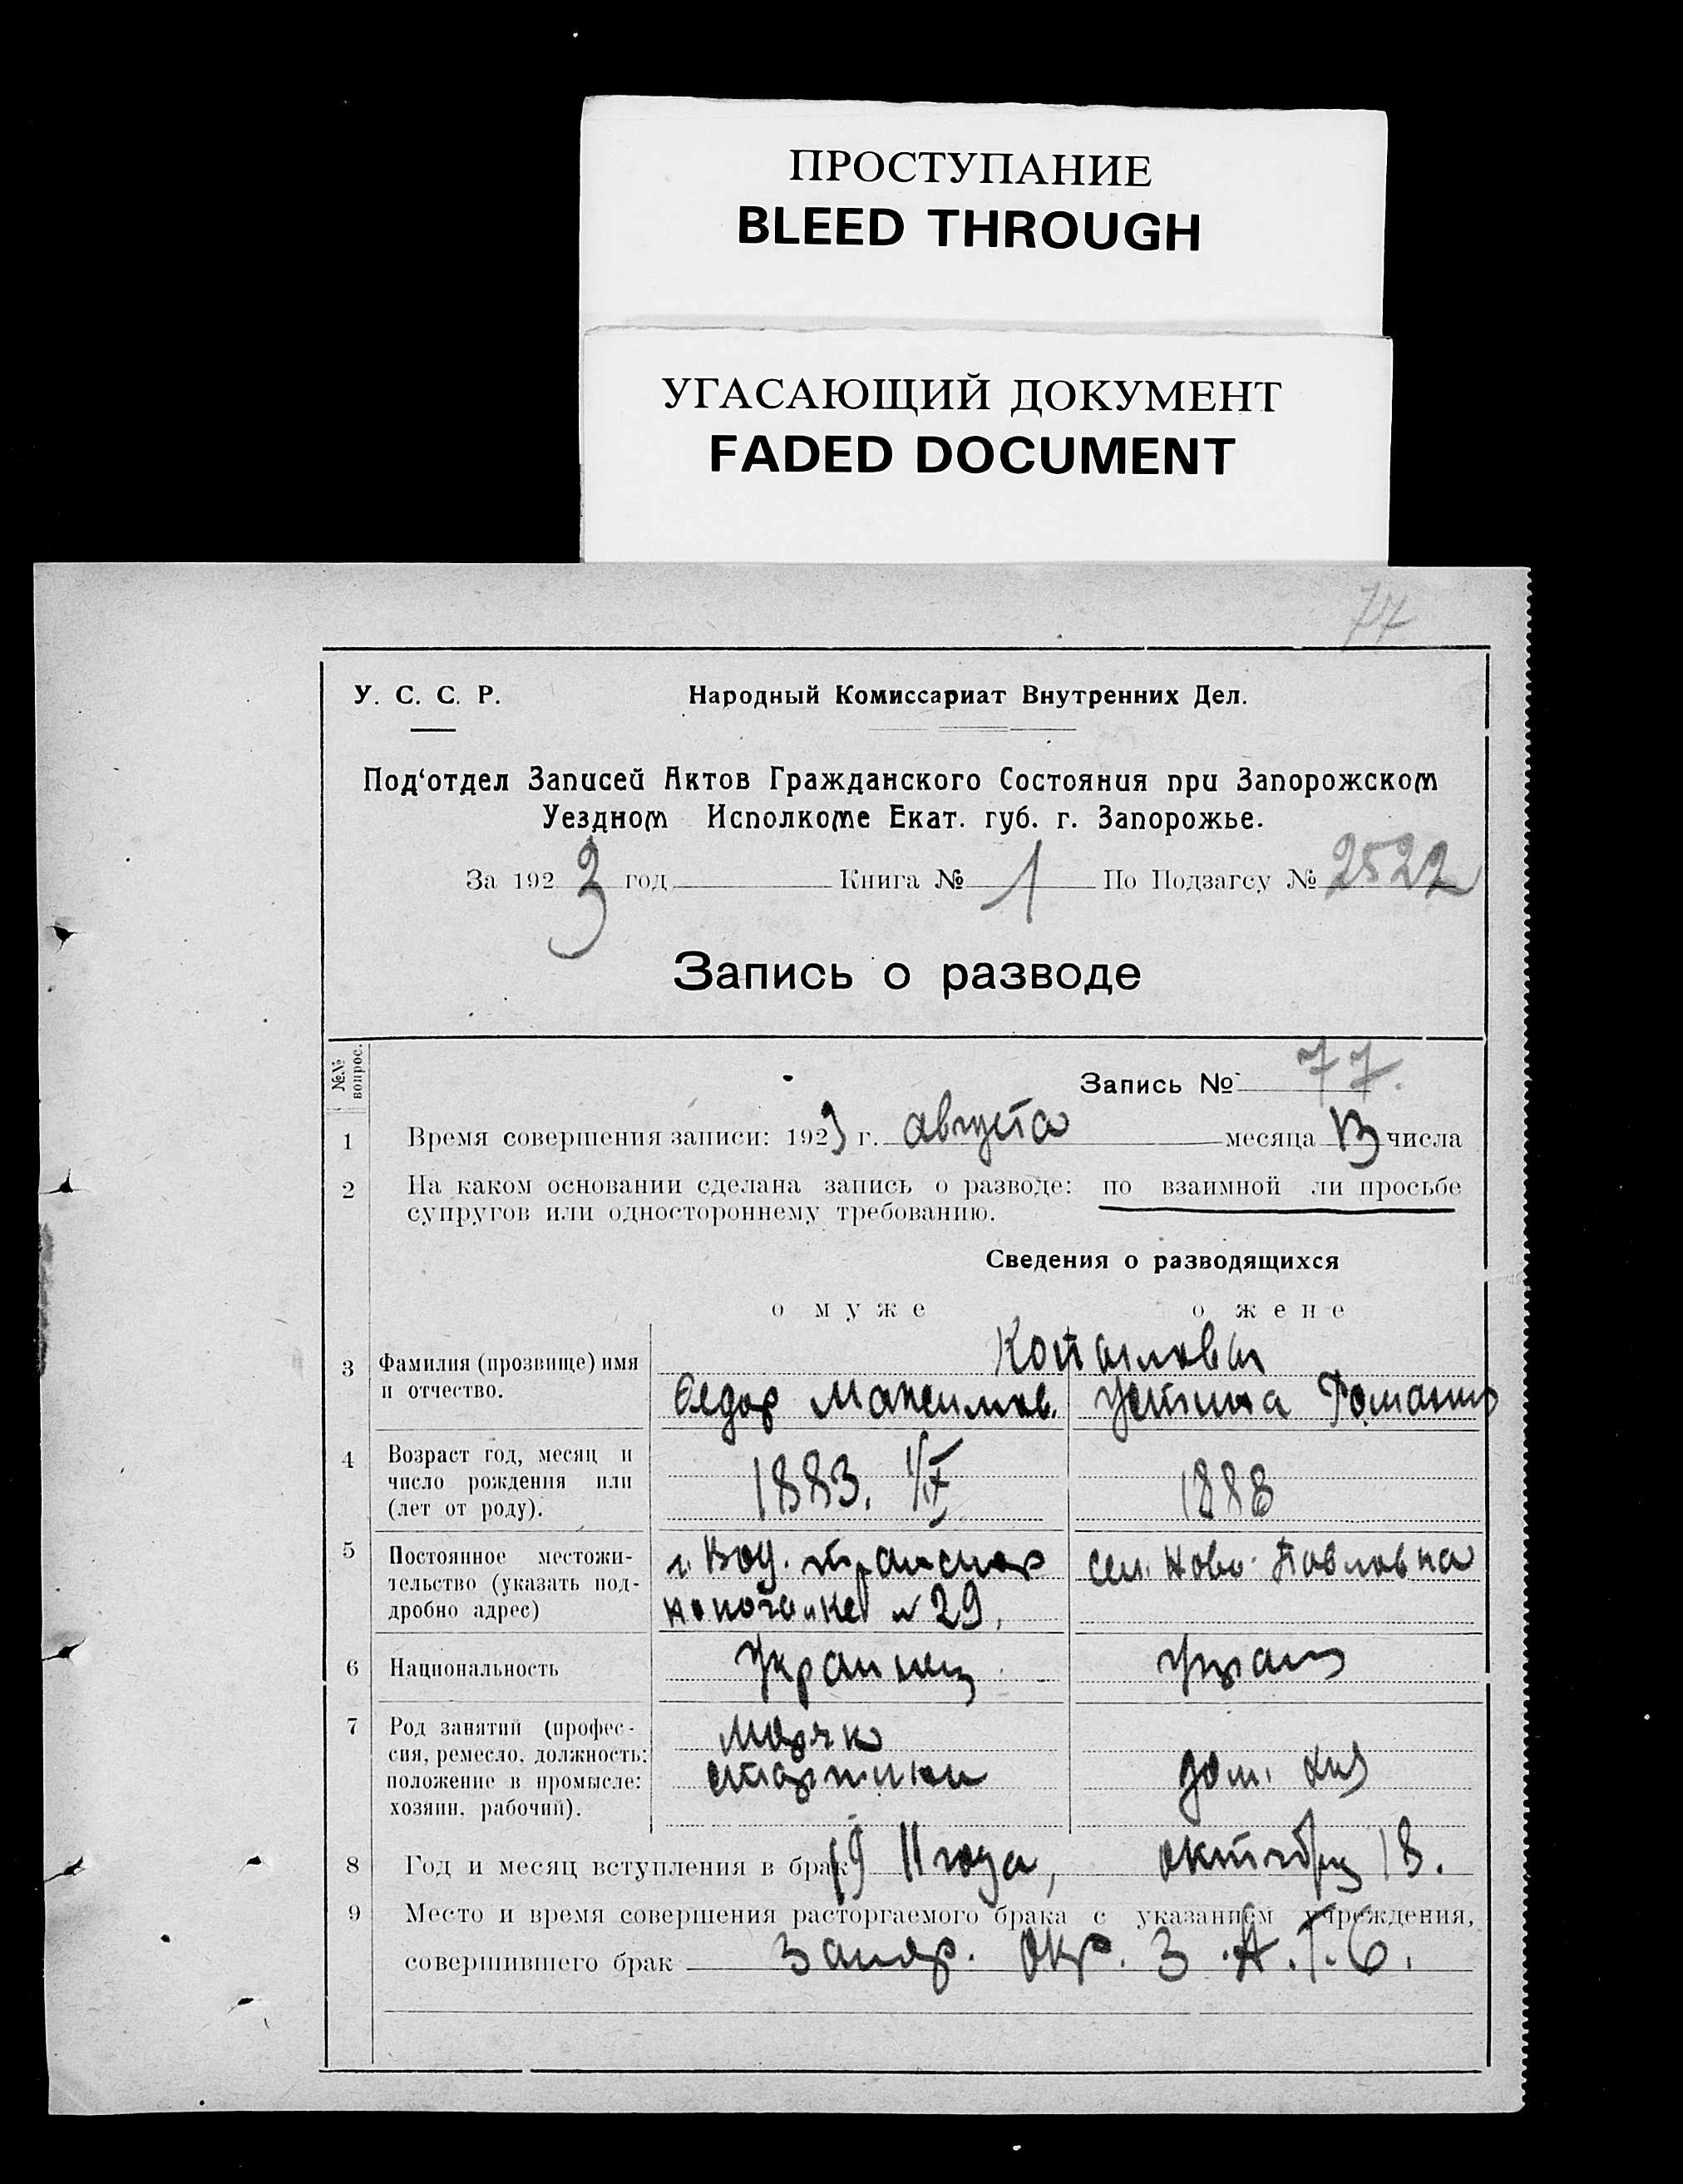 ПРОСТУПАНИЕ
BLEED THROUGH
УГАСАЮЩИЙ ДОКУМЕНТ
FADED DOCUMENT
77
У. С. С. Р. Народный Комиссариат Внутренних Дел.
Под‘отдел Записей Актов Гражданского Состояния при Запорожском
Уездном Исполкоме Екат. губ. г. Запорожье.
За 1923 год Книга № 1 По Подзагсу № 2522
Запись о разводе
№№ вопрос.
Запись № 77.
1 Время совершения записи: 1923 г. августа месяца 13 числа
2 На каком основании сделана запись о разводе: по взаимной ли просьбе
супругов или одностороннему требованию.
Сведения о разводящихся
о муже о жене
3 Фамилия (прозвище) имя
и отчество.
Федор Максимов. Устина Роман
4 Возраст год, месяц и
число рождения или
(лет от роду).
1883. 1/IX 1888
5 Постоянное местожи-
тельство (указать под-
дробно адрес)
г. Вод. сел. Ново-Павловка
№ 29.
6 Национальность Украинец
7 Род занятий (профес-
сия, ремесло, должность:
положение в промысле:
хозяин, рабочий).
дом.
8 Год и месяц вступления в брак 1911 года, октября 13.
9 Место и время совершения расторгаемого брака с указанием учреждения,
совершившего брак Запор. Окр. З.А.Г.С.